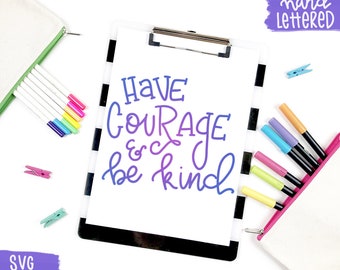 hand
LETTERED
HAVE
COURAGE
&
be kind
SVG